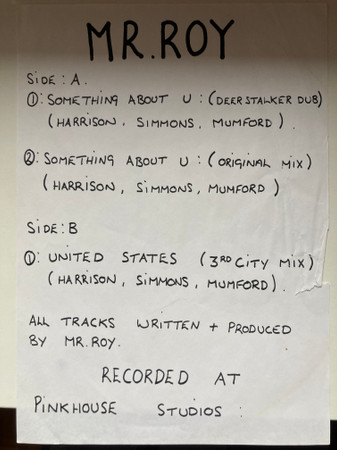 MR.ROY
SIDE: A.
①: SOMETHING ABOUT U: (DEERSTALKER DUB)
(HARRISON, SIMMONS, MUMFORD).
②: SOMETHING ABOUT U: (ORIGINAL MIX)
(HARRISON, SIMMONS, MUMFORD)
SIDE: B
①: UNITED STATES (3RD CITY MIX)
(HARRISON, SIMMONS, MUMFORD).
ALL TRACKS WRITTEN + PRODUCED
BY MR.ROY.
RECORDED AT
PINKHOUSE STUDIOS: